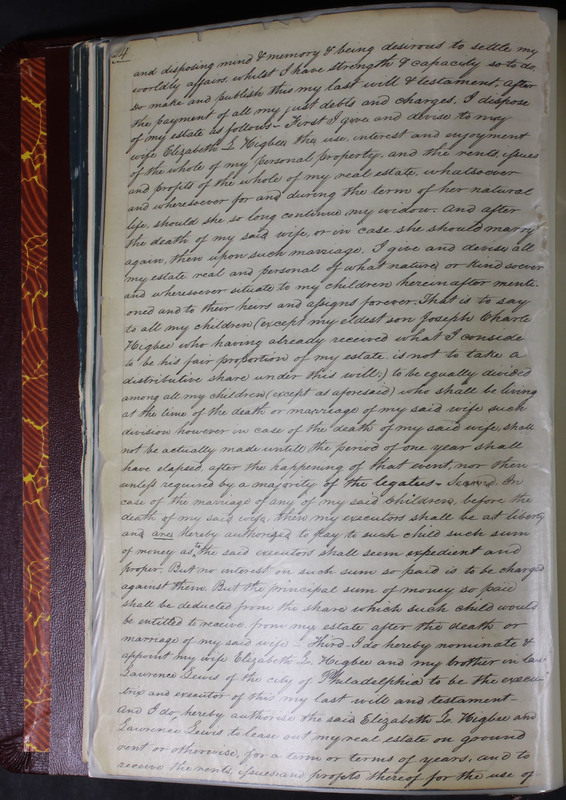 4
and disposing mind & memory & being desirous to settle my
worldly affairs, whilst I have strength & capacity so to do,
Do make and publish this my last will & testament, after
the payment of all my just debts and charges. I dispose
of my estate as follows - First I give and devise to may
wife Elizabeth L. Higbee the use, interest and enjoyment
of the whole of my personal property, and the rents, issues
and profits of the whole of my real estate, whatsoever
and wheresoever for and during the term of her natural
life, should she so long continue my widow. And after
the death of my said wife, or in case she should marry
again, then upon such marriage. I give and devise, all
my estate real and personal of what nature or kind soever
and wheresoever situate to my children hereinafter menti-
oned and to their heirs and assigns forever. That is to say
to all my children (except my eldest son Joseph Charle
Higbee who having already received what I conside
to be his fair proportion of my estate is not to take a
distributive share under this will;) to be equally divided
among all my children (except as aforesaid) who shall be living
at the time of the death or marriage of my said wife such
division however in case of the death of my said wife, shall
not be actually made untill the period of one year shall
have elapsed, after the happening of that event, nor then
unless required by a majority of the legatees - Second. In
case of the marriage of any of my said children, before the
death of my said wife, then my executors shall be at liberty
and are hereby authorised to pay to such child such sum
of money as to the said executors shall seem expedient and
proper. But no interest on such sum so paid is to be charged
against them. But the principal sum of money so paid
shall be deducted from the share which such child would
be entitled to receive from my estate after the death or
marriage of my said wife - Third - I do hereby nominate &
appoint my wife Elizabeth L. Higbee and my brother in law
Lawrence Lewis of the city of Philadelphia to be the execu-
trix and executor of this my last will and testament -
And I do, hereby authorise the said Elizabeth L. Higbee and
Lawrence Lewis to lease out my real estate on ground
rent or otherwise, for a term or terms of years, and to
receive the rents, issues and profits thereof for the use of